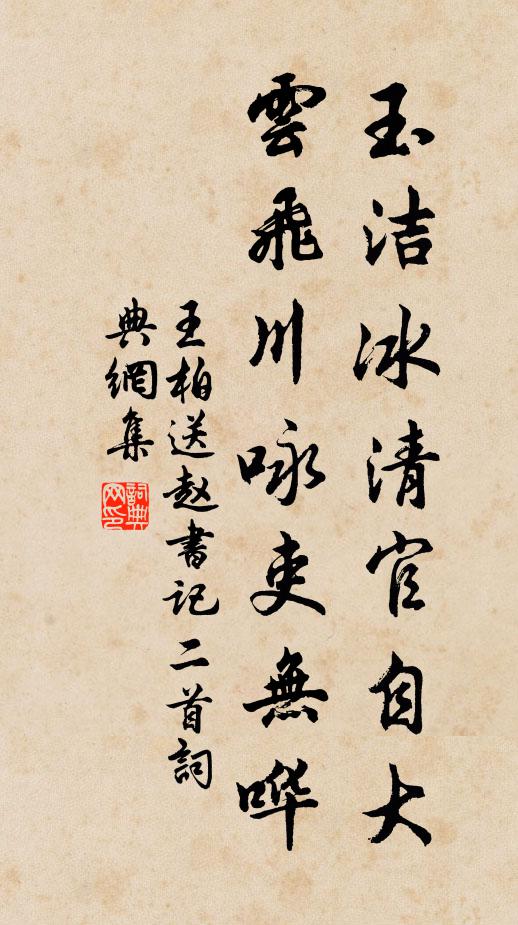 玉洁冰清官自大
雲飛川咏吏無哗
王柏送赵書记二首詞
典網集
詞典网印